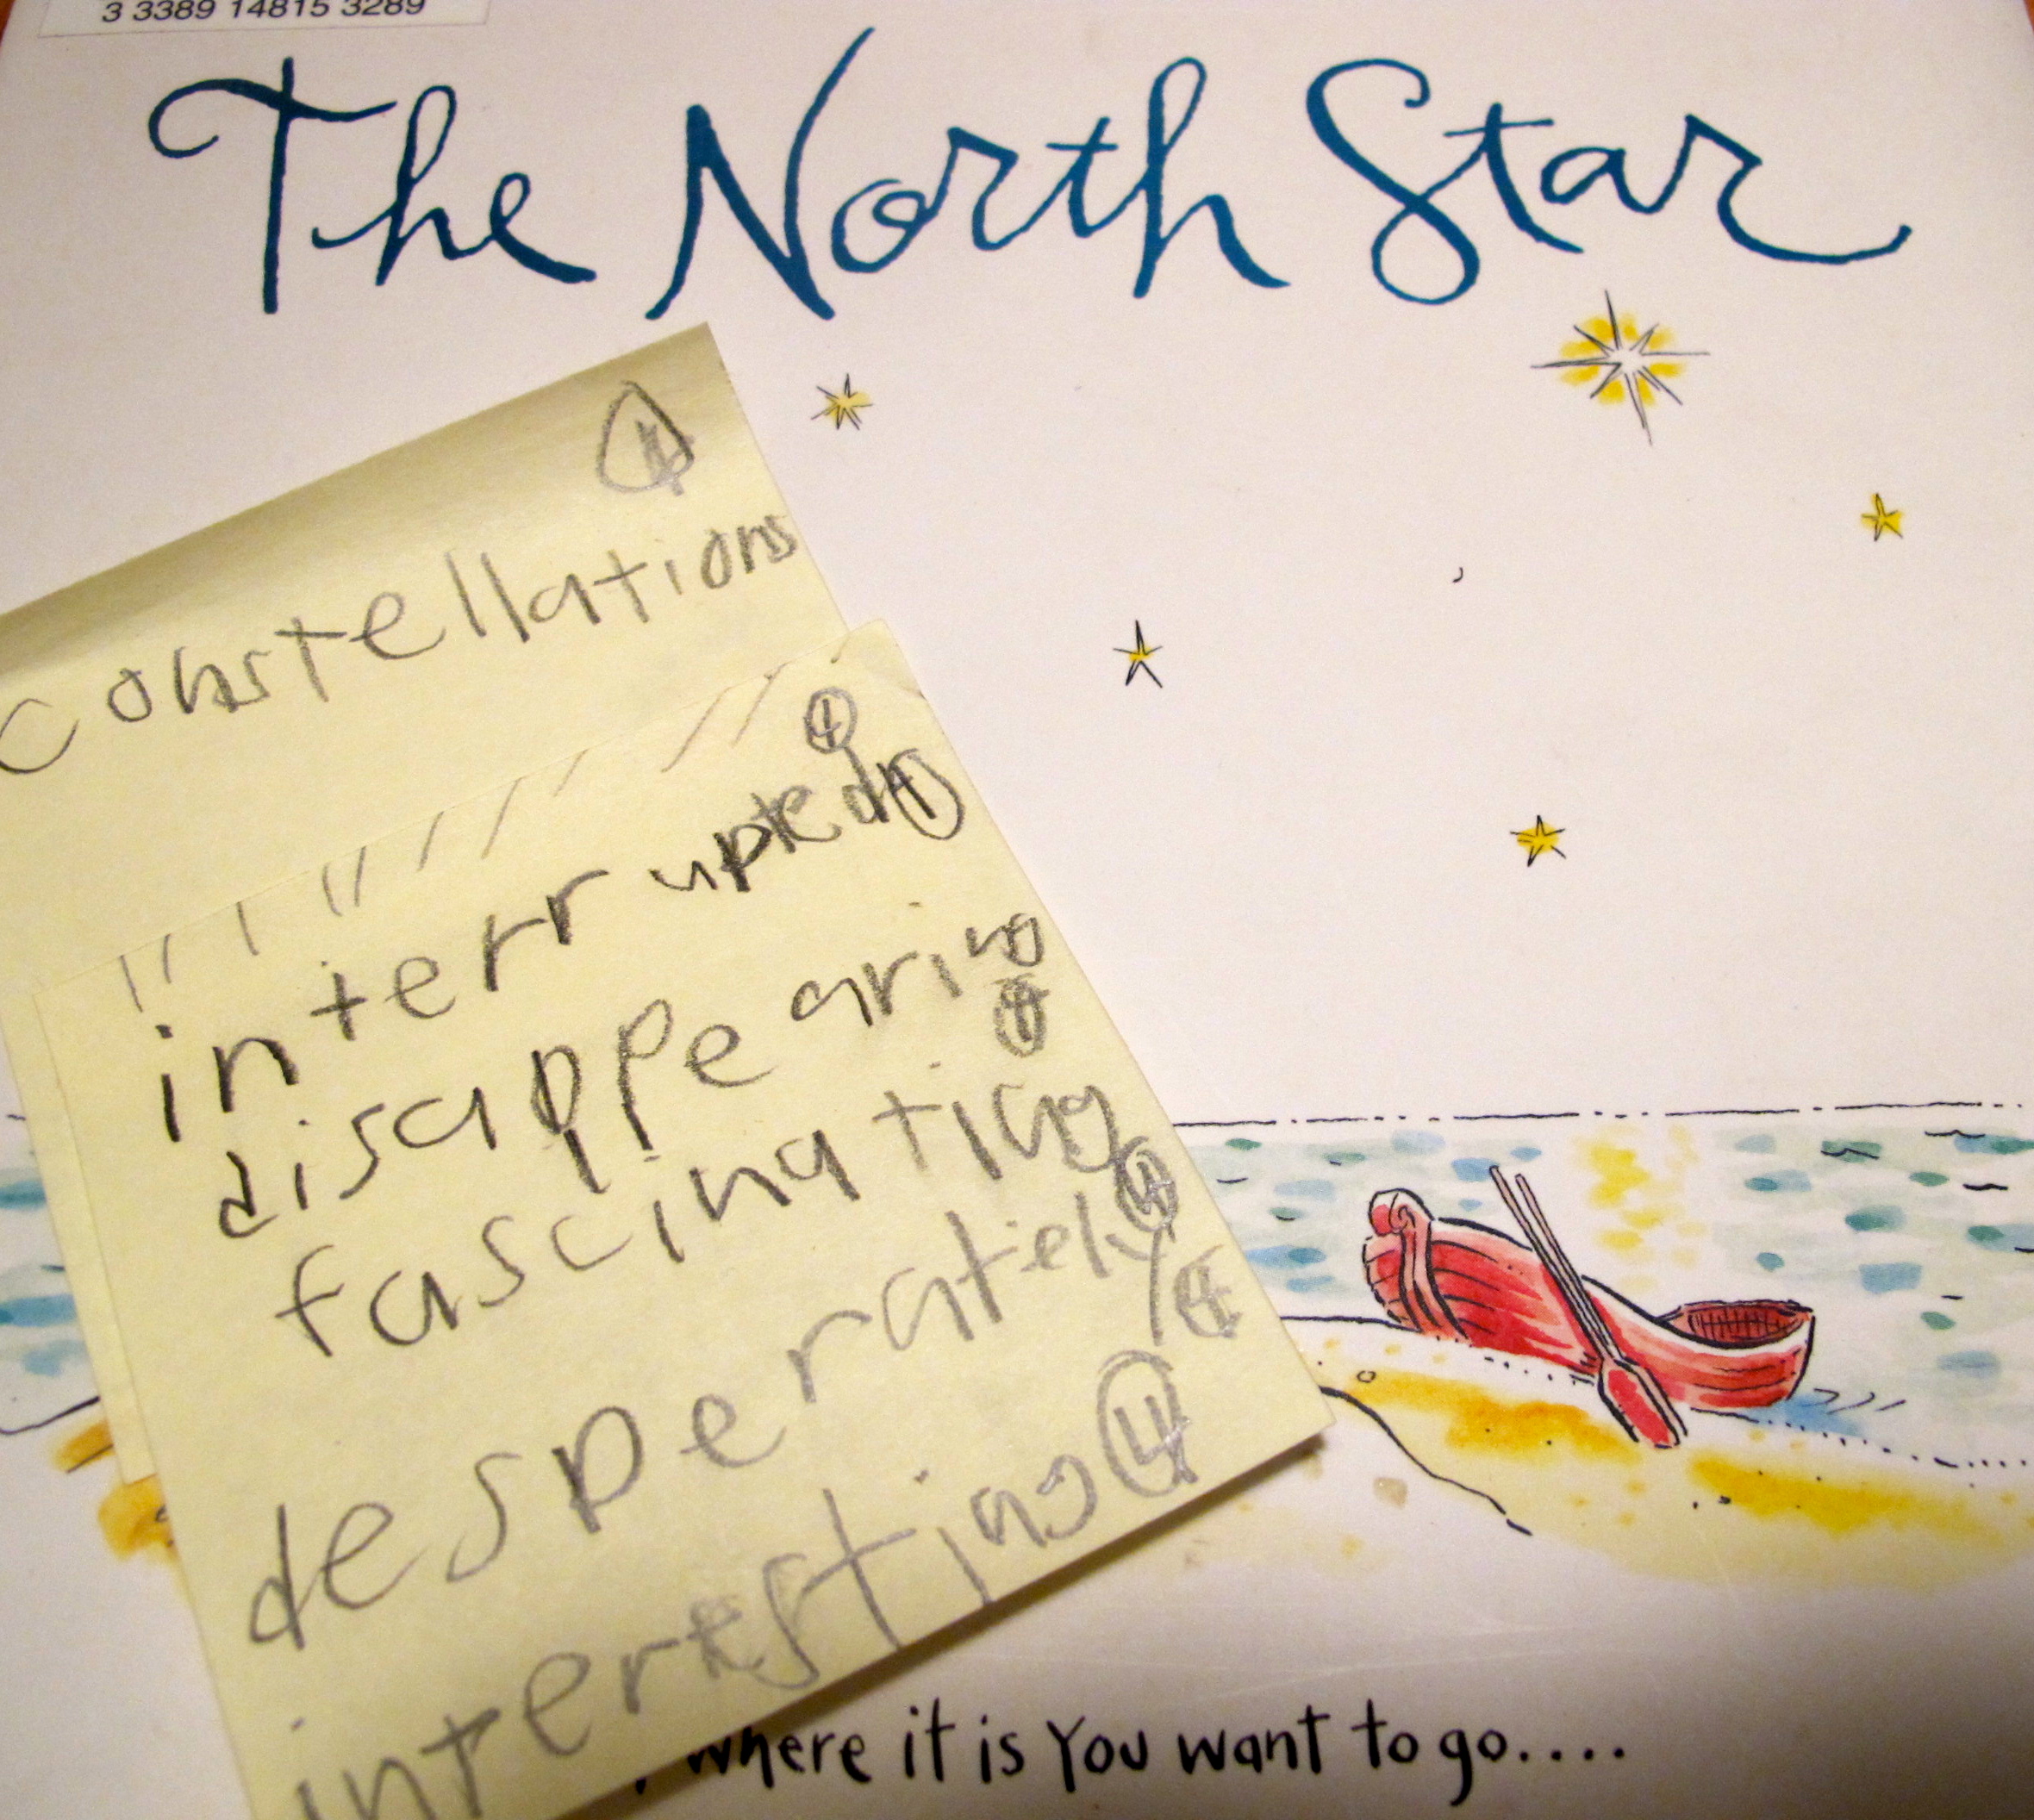 3 3389 14815 3289
The North Star
4
constellations
4
interrupted 4
disappearing
4
fascinating
4
desperately 4
interesting 4
where it is You want to go....